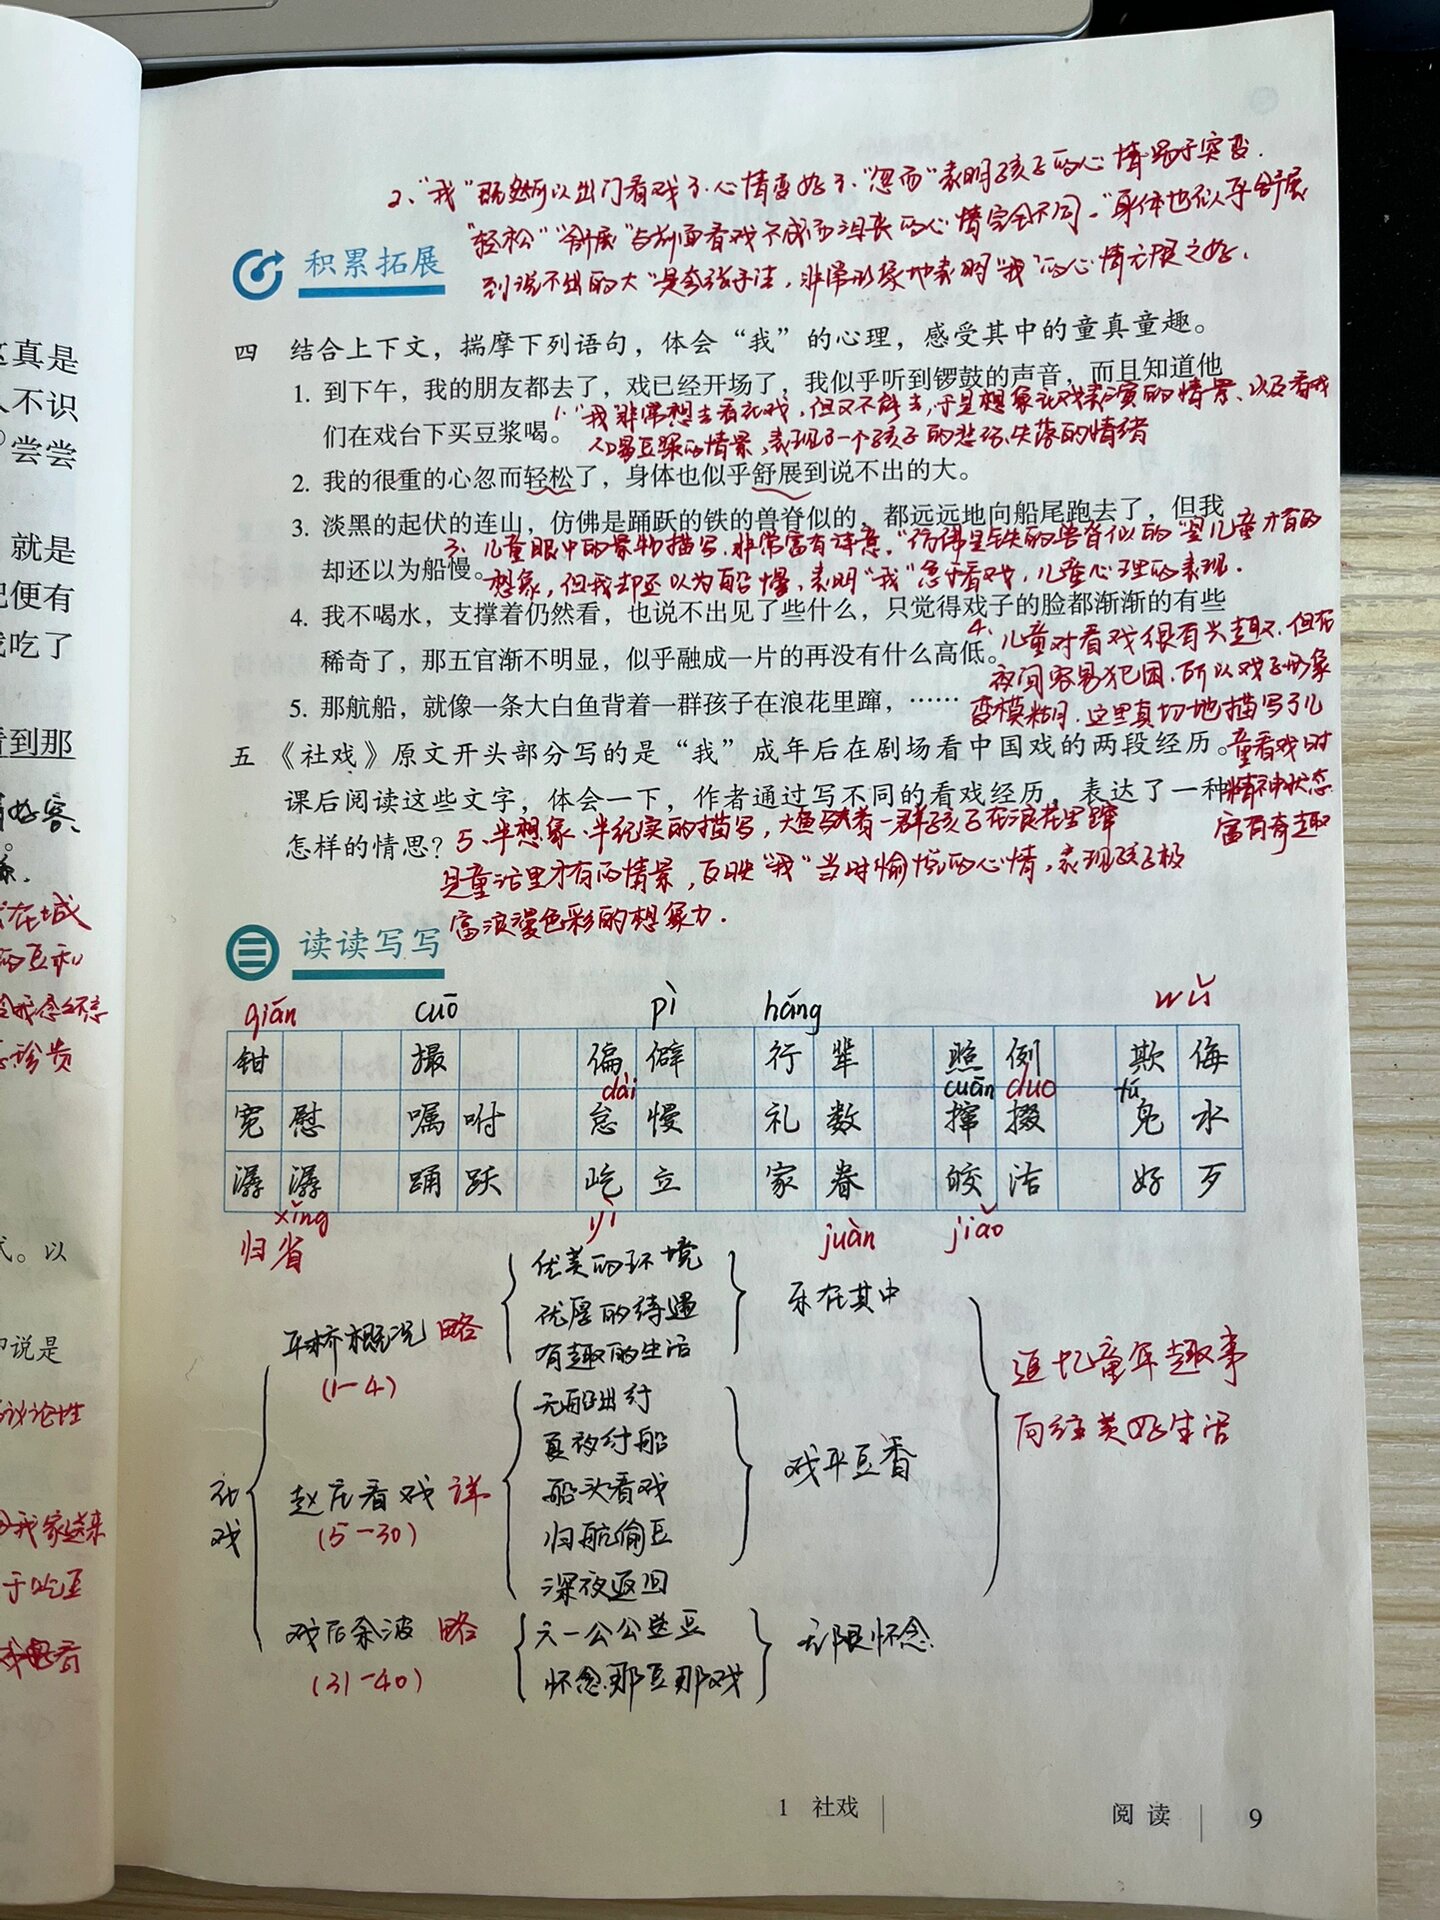 2、“我”既然可以出门看戏了.心情变好了.“忽而”表明孩子的心情易于突变.
“轻松”“舒展”与前面看戏不成而沮丧的心情完全不同.“身体也似乎舒展
到说不出的大”是夸张手法,非常形象地表明“我”的心情无限之好.
积累拓展
四 结合上下文，揣摩下列语句，体会“我”的心理，感受其中的童真童趣。
1. 到下午，我的朋友都去了，戏已经开场了，我似乎听到锣鼓的声音，而且知道他
1.“我”非常想去看社戏,但又不能去,于是想象社戏表演的情景、以及看戏
们在戏台下买豆浆喝。
人喝豆浆的情景,表现了一个孩子的悲伤、失落的情绪
2. 我的很重的心忽而轻松了，身体也似乎舒展到说不出的大。
3. 淡黑的起伏的连山，仿佛是踊跃的铁的兽脊似的，都远远地向船尾跑去了，但我
3、儿童眼中的景物描写.非常富有诗意.“仿佛是铁的兽脊似的”是儿童才有的
却还以为船慢。
想象,但我却还以为船慢,表明“我”急于看戏,儿童心理的表现.
4. 我不喝水，支撑着仍然看，也说不出见了些什么，只觉得戏子的脸都渐渐的有些
稀奇了，那五官渐不明显，似乎融成一片的再没有什么高低。
4、儿童对看戏很有兴趣.但在
夜间容易犯困.所以戏子形象
变模糊.这里真切地描写了儿
童看戏时
精神状态
富有奇趣
5. 那航船，就像一条大白鱼背着一群孩子在浪花里蹿，……
五 《社戏》原文开头部分写的是“我”成年后在剧场看中国戏的两段经历。
课后阅读这些文字，体会一下，作者通过写不同的看戏经历，表达了一种
怎样的情思？
5、半想象、半纪实的描写,大鱼驮着一群孩子在浪花里蹿
是童话里才有的情景,反映“我”当时愉悦的心情,表现孩子极
富浪漫色彩的想象力.
读读写写
qián cuō pì háng wǔ
钳 撮 偏僻 行辈 照例 欺侮
dài cuān duo fú
宽慰 嘱咐 怠慢 礼数 撺掇 凫水
潺潺 踊跃 屹立 家眷 皎洁 好歹
xǐng yì juàn jiǎo
归省
社戏
平桥概况 略
(1-4)
优美的环境
优厚的待遇
有趣的生活
乐在其中
赵庄看戏 详
(5-30)
无船出行
夏夜行船
船头看戏
归航偷豆
深夜返回
戏平豆香
戏后余波 略
(31-40)
六一公公送豆
怀念那豆那戏
无限怀念.
追忆童年趣事
向往美好生活
1 社戏
阅读
9
这真是
人不识
尝尝
就是
记便有
我吃了
看到那
好客、
在城
的豆和
珍贵
式。以
如说是
议论性
我家送来
于吃豆